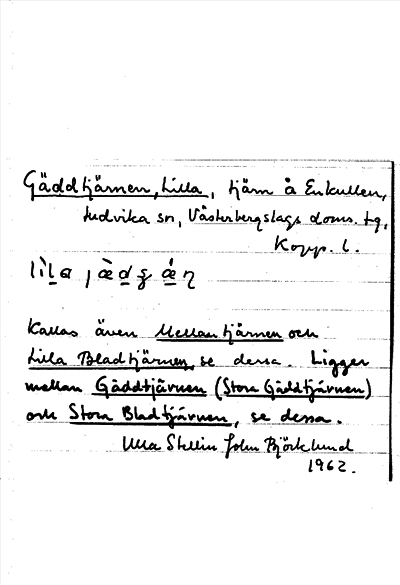 Gäddtjärnen, Lilla, tjärn å Enkullen,
Ludvika sn, Västerbergslags doms. tg,
Kopp. l.
Kallas även Mellantjärnen och
Lilla Bladtjärnen, se dessa. Ligger
mellan Gäddtjärnen (Stora Gäddtjärnen)
och Stora Bladtjärnen, se dessa.
Ulla Stellin John Björklund
1962.